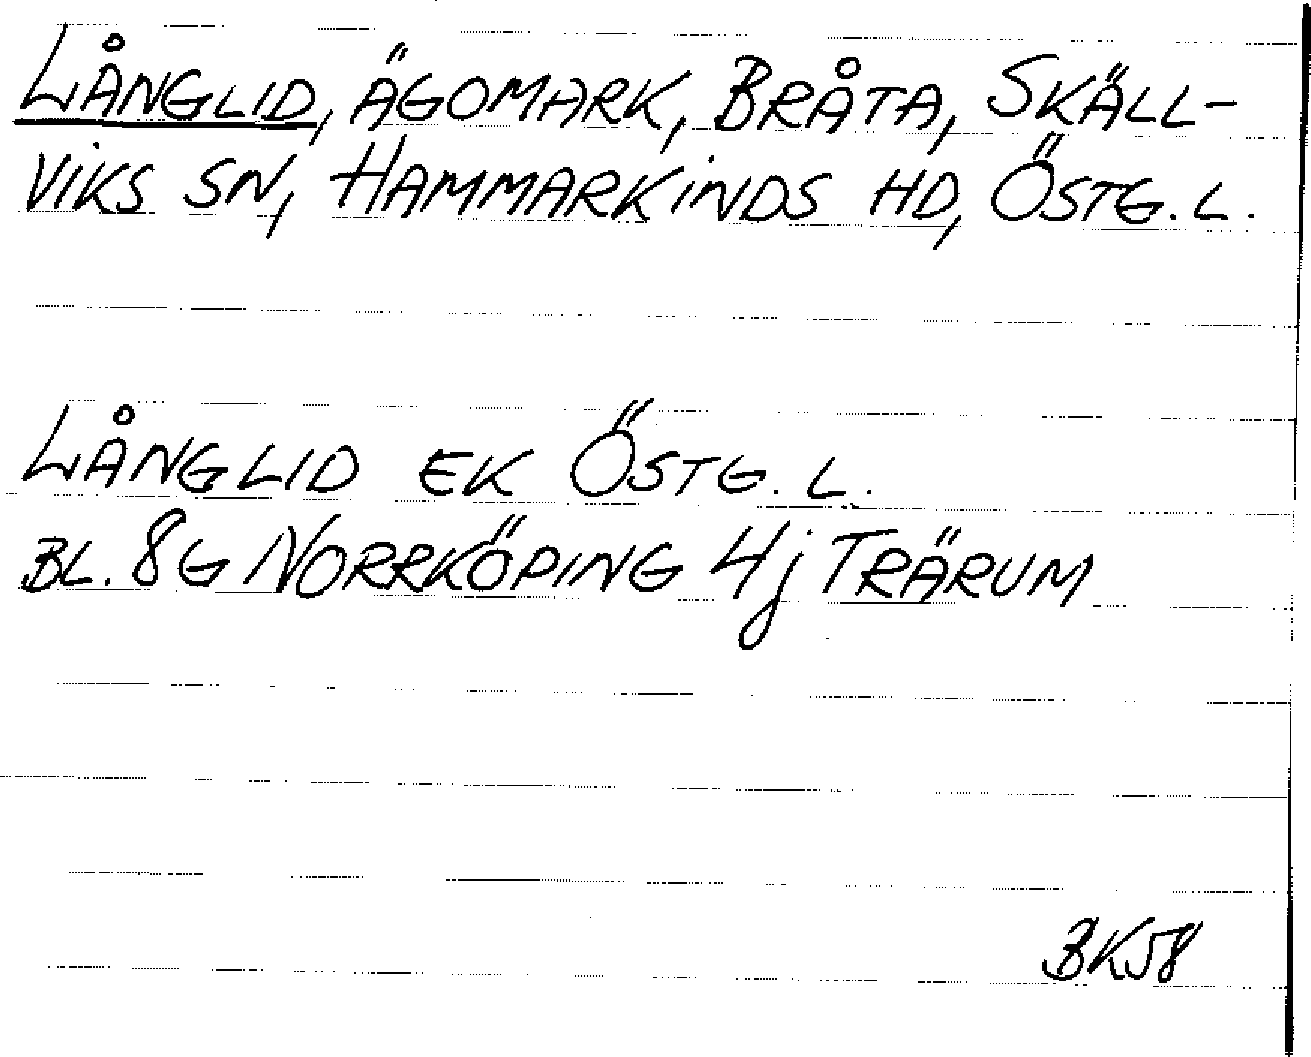 LÅNGLID, ÄGOMARK, BRÅTA, SKÄLL-
VIKS SN, HAMMARKINDS HD, ÖSTG. L.
LÅNGLID EK ÖSTG. L.
BL. 8G NORRKÖPING 4j TRÄRUM
BK58